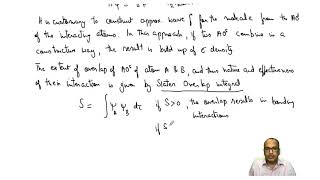 It is customary to construct approx. wave f for the molecule from the AOs
of the interacting atoms. In this approach, if two AOs combine in a
constructive way, the result is build up of e density.
The extent of overlap of AOs of atom A & B, and thus nature and effectiveness
of their interaction is given by Slater Overlap integral
S = ∫ψA ψB dτ if S>0, the overlap results in bonding
interactions
if S